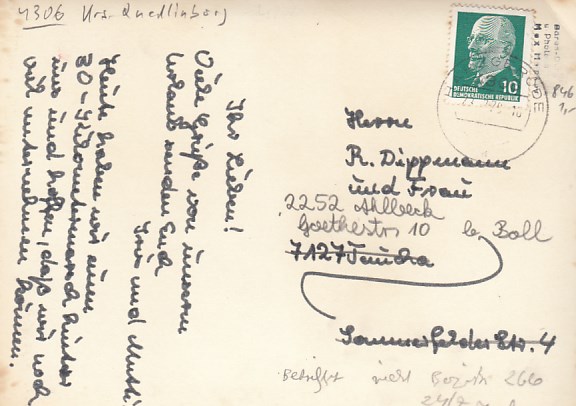 4306 Krs. Quedlinburg
Ihr Lieben!
Viele Grüße von unserem
Urlaub senden Euch
Iris und Mutti
Heute haben wir einen
30-Kilometermarsch hinter
uns und hoffen, daß wir noch
viel unternehmen können.
10
DEUTSCHE
DEMOKRATISCHE REPUBLIK
846
1,-
Herrn
R. Dippmann
und Frau
2252 Ahlbeck
Goethestr 10 be Boll
7127 Taucha
Sommerfelder Str. 4
Betrifft nicht Bezirk 2260